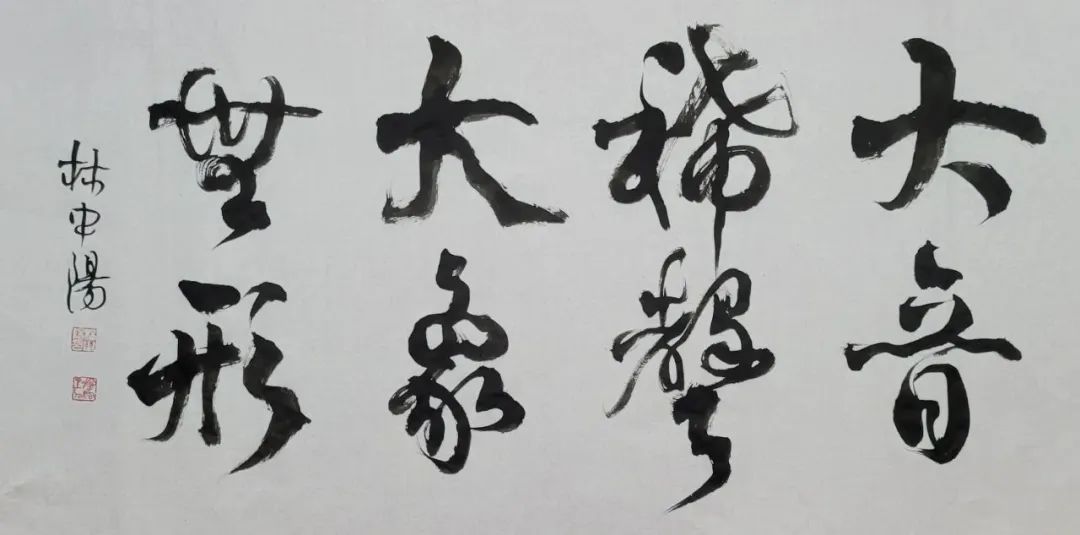 大音
稀聲
大象
無形
林中陽